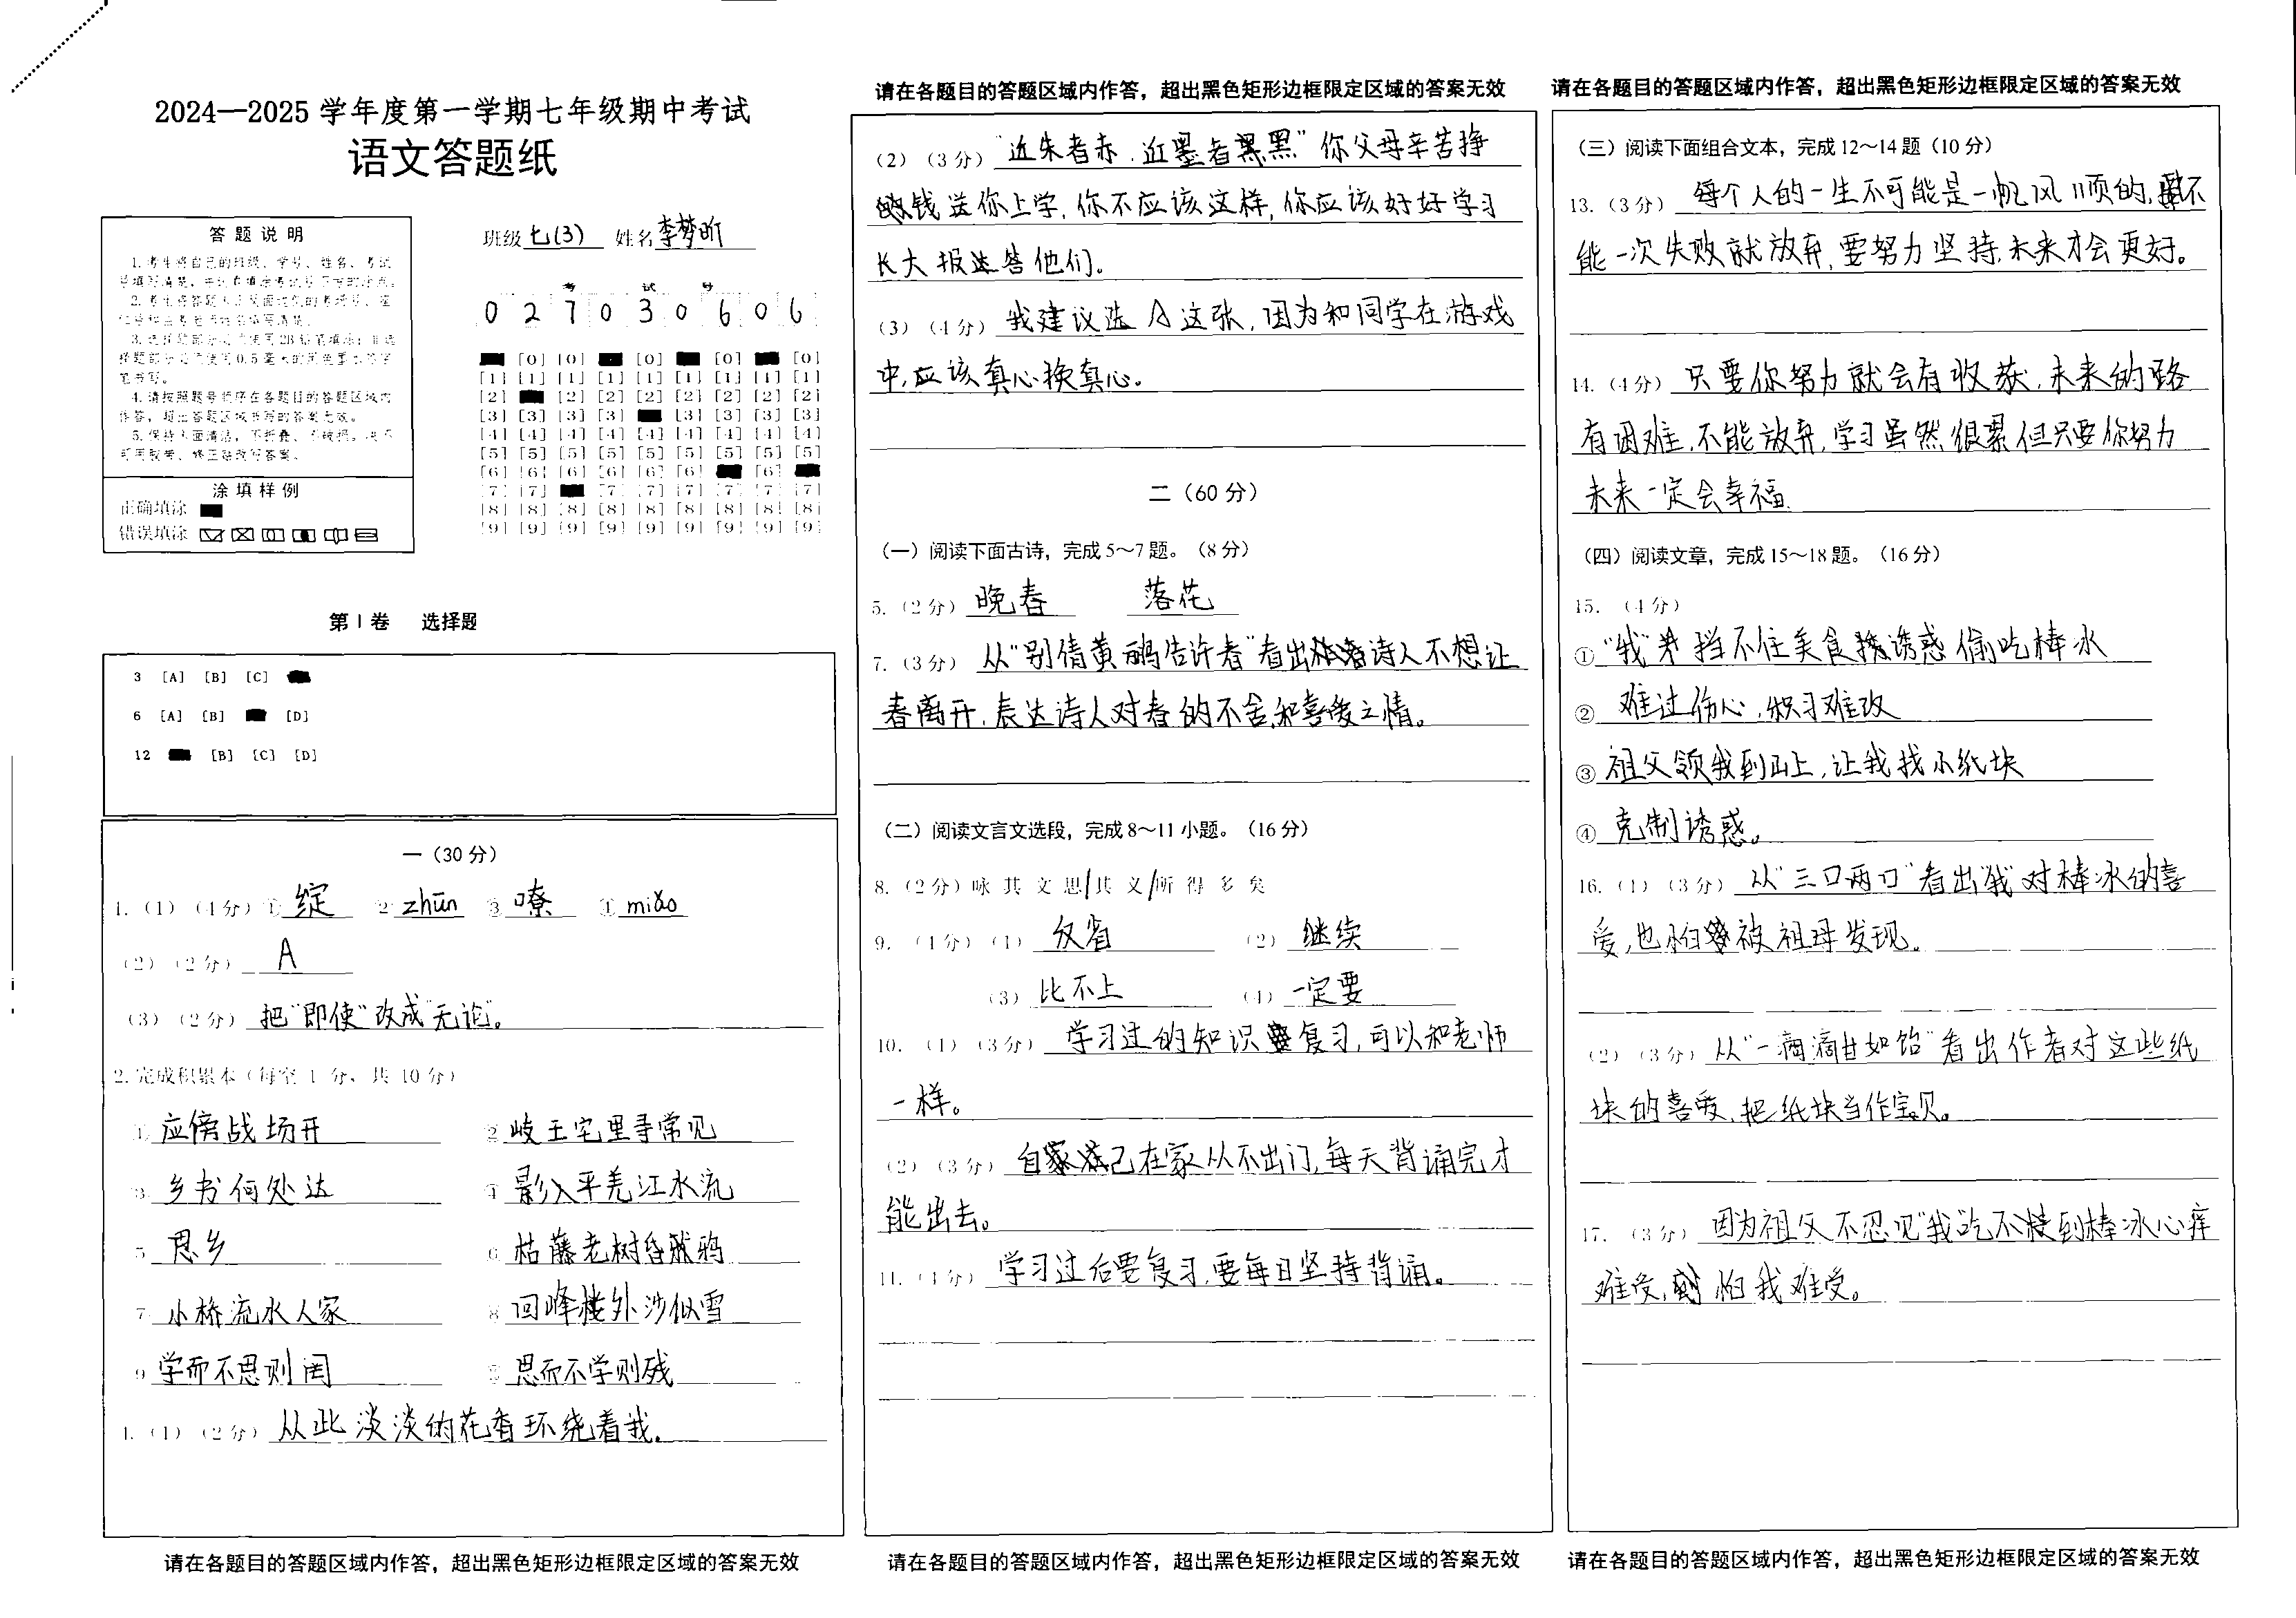 2024—2025 学年度第一学期七年级期中考试
语文答题纸
答题说明
1.考生将自己的班级、学号、姓名、考试
3.选择题部分必须使用2B铅笔填涂；非选
择题部分必须使用0.5毫米的黑色墨水签字
笔书写。
4.请按照题号顺序在各题目的答题区域内
作答，超出答题区域书写的答案无效。
5.保持卡面清洁，不折叠、不破损。
涂填样例
正确填涂
错误填涂
班级 七(3) 姓名 李梦昕
考 试 号
0 2 7 0 3 0 6 0 6
[0] [0] [0] [0] [0]
[1] [1] [1] [1] [1] [1] [1] [1] [1]
[2] [2] [2] [2] [2] [2] [2] [2]
[3] [3] [3] [3] [3] [3] [3] [3]
[4] [4] [4] [4] [4] [4] [4] [4] [4]
[5] [5] [5] [5] [5] [5] [5] [5] [5]
[6] [6] [6] [6] [6] [6] [6]
[7] [7] [7] [7] [7] [7] [7] [7]
[8] [8] [8] [8] [8] [8] [8] [8] [8]
[9] [9] [9] [9] [9] [9] [9] [9] [9]
第Ⅰ卷 选择题
3 [A] [B] [C]
6 [A] [B] [D]
12 [B] [C] [D]
一（30分）
1.（1）（4分）① 绽 ② zhūn ③ 嘹 ④ miǎo
（2）（2分） A
（3）（2分） 把“即使”改成“无论”。
2.完成积累本（每空 1 分，共 10 分）
① 应傍战场开 ② 岐王宅里寻常见
③ 乡书何处达 ④ 影入平羌江水流
5 思乡 6 枯藤老树昏鸦
7 小桥流水人家 8 回峰楼外沙似雪
9 学而不思则罔 ⑩ 思而不学则残
4.（1）（2分） 从此淡淡的花香环绕着我。
请在各题目的答题区域内作答，超出黑色矩形边框限定区域的答案无效
请在各题目的答题区域内作答，超出黑色矩形边框限定区域的答案无效
（2）（3分） “近朱者赤，近墨者黑”你父母辛苦挣
钱送你上学，你不应该这样，你应该好好学习
长大报答他们。
（3）（4分） 我建议选A这张，因为和同学在游戏
中，应该真心换真心。
二（60分）
（一）阅读下面古诗，完成5～7题。（8分）
5.（2分） 晚春 落花
7.（3分） 从“别倩黄鹂告许春”看出诗人不想让
春离开，表达诗人对春的不舍和喜爱之情。
（二）阅读文言文选段，完成8～11小题。（16分）
8.（2分）咏 其 文 思/其 义/所 得 多 矣
9.（4分）（1） 反省 （2） 继续
（3） 比不上 （4） 一定要
10.（1）（3分） 学习过的知识复习，可以和老师
一样。
（2）（3分） 自己在家从不出门，每天背诵完才
能出去。
11.（4分） 学习过后要复习，要每日坚持背诵。
请在各题目的答题区域内作答，超出黑色矩形边框限定区域的答案无效
请在各题目的答题区域内作答，超出黑色矩形边框限定区域的答案无效
（三）阅读下面组合文本，完成12～14题（10分）
13.（3分） 每个人的一生不可能是一帆风顺的，不
能一次失败就放弃，要努力坚持，未来才会更好。
14.（4分） 只要你努力就会有收获，未来的路
有困难，不能放弃，学习虽然很累但只要你努力
未来一定会幸福.
（四）阅读文章，完成15～18题。（16分）
15.（4分）
① “我”挡不住美食诱惑偷吃棒冰
② 难过伤心，积习难改
③ 祖父领我到山上，让我找小纸块
④ 克制诱惑。
16.（1）（3分） 从“三口两口”看出“我”对棒冰的喜
爱，也怕被祖母发现。
（2）（3分） 从“一滴滴甘如饴”看出作者对这些纸
块的喜爱，把纸块当作宝贝。
17.（3分） 因为祖父不忍见“我”吃不到棒冰心痒
难受，怕我难受。
请在各题目的答题区域内作答，超出黑色矩形边框限定区域的答案无效